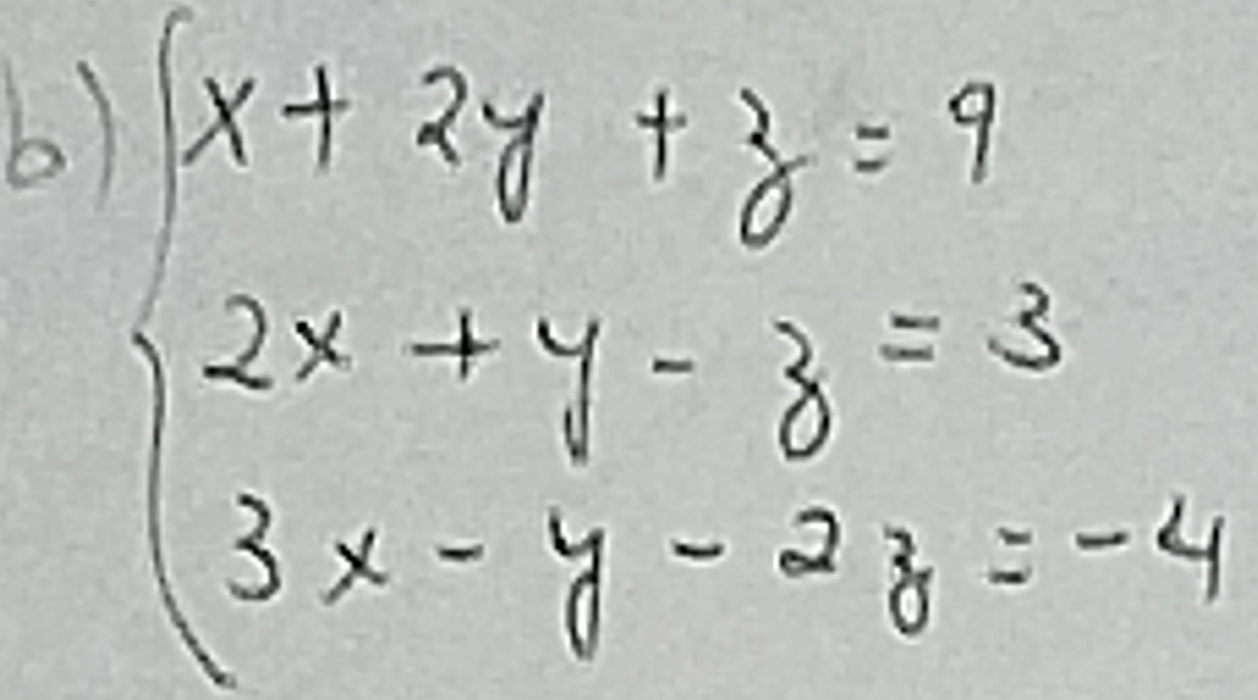 b) x + 2y + z = 9
2x + y - z = 3
3x - y - 2z = -4